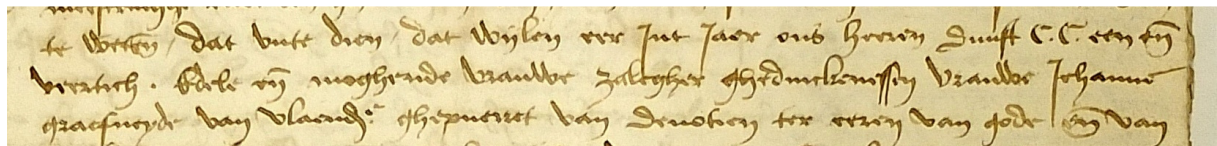 te weten, dat vute dien, dat wylen eer Int Jaer ons heeren Duust C.C. een en̄
veertich. Edele en̄ moghende vrauwe zalegher ghedinckenessen vrauwe Jehanne
graefneyde van vlaendr̄. ghepuerret van deuotien ter eeren van gode en̄ van